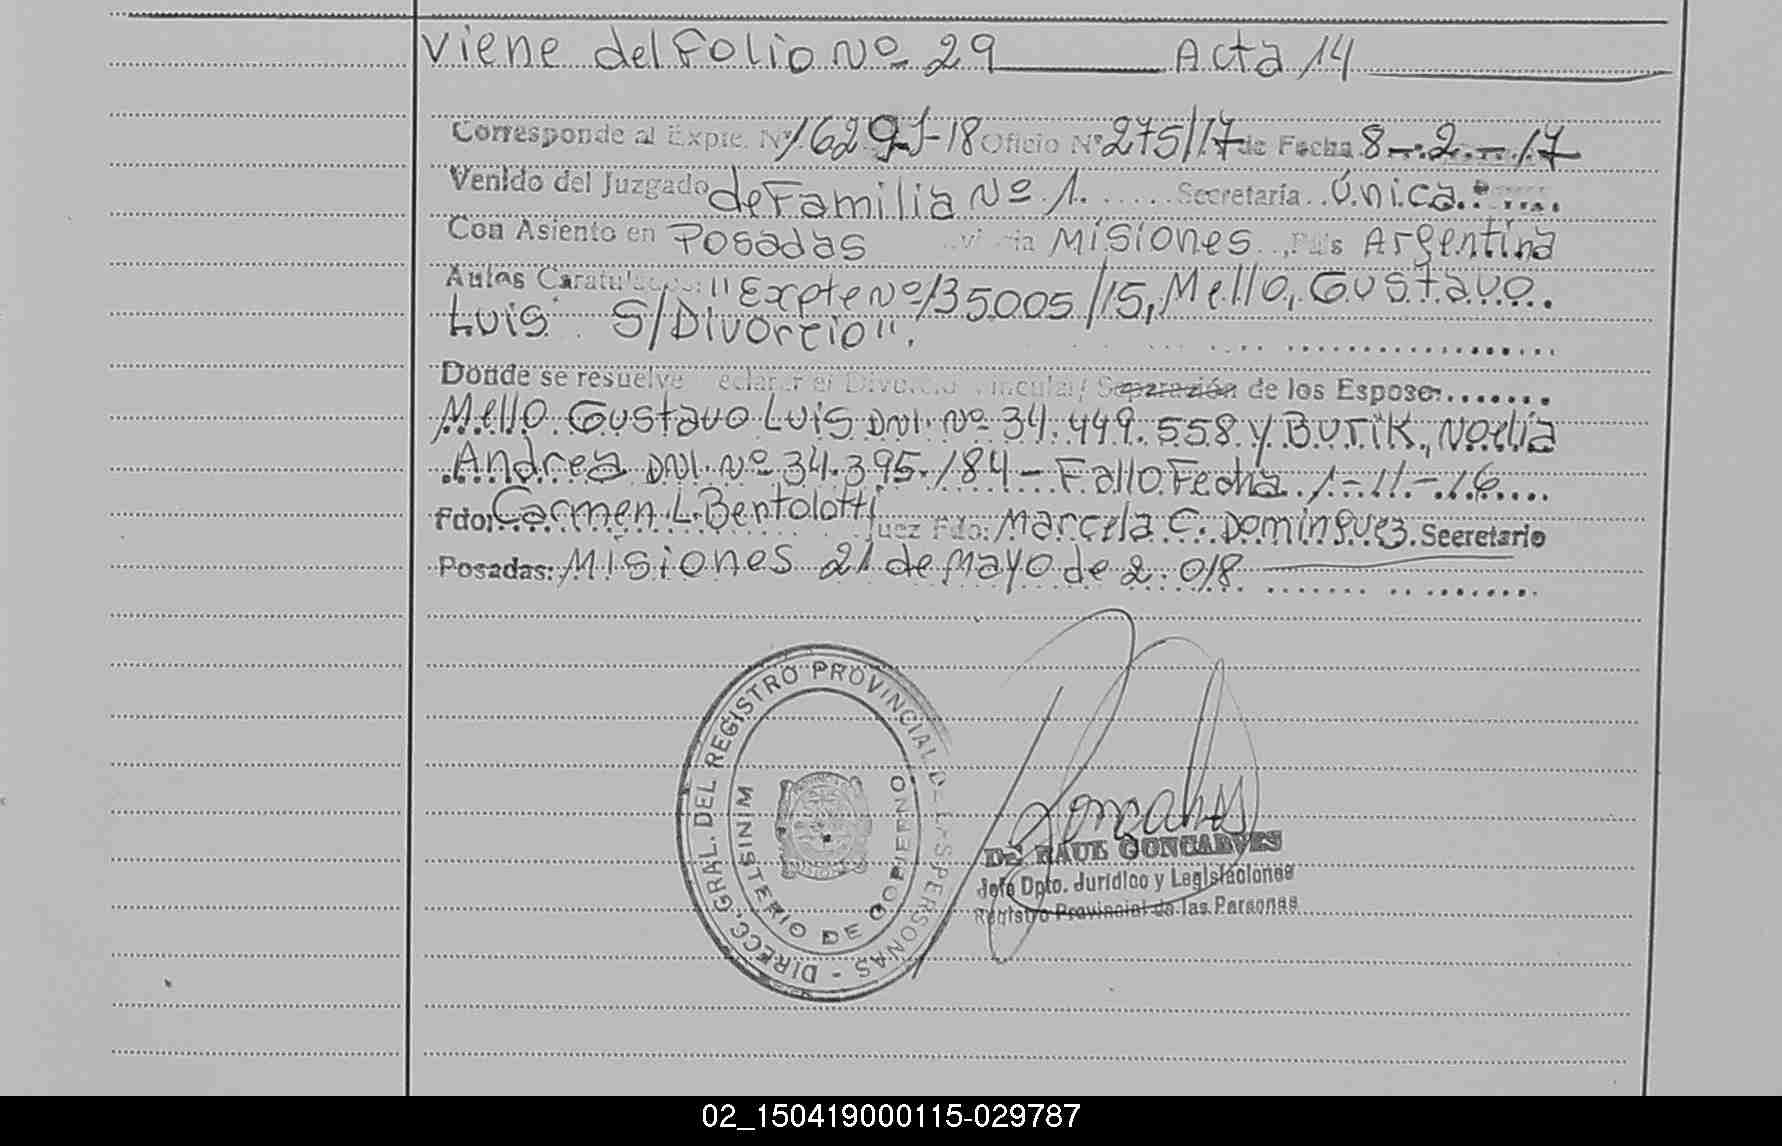 Viene del Folio Nº 29 Acta 14
Corresponde al Expte. Nº 1629-J-18 Oficio Nº 275/17 de Fecha 8-2-17
Venido del Juzgado de Familia Nº 1. Secretaría Única.
Con Asiento en Posadas Misiones País Argentina
Autos Caratulados: "Expte Nº 135005/15, Mello, Gustavo
Luis S/Divorcio".
Donde se resuelve eclarar el Divorcio Vincular/ Separación de los Esposos
Mello Gustavo Luis DNI. Nº 34.449.558 y Burik, Noelia
Andrea DNI. Nº 34.395.184 - Fallo Fecha 1-11-16
Fdo: Carmen L. Bentolotti Juez Fdo: Marcela C. Dominguez. Secretario
Posadas: Misiones 21 de Mayo de 2.018
DIRECC. GRAL. DEL REGISTRO PROVINCIAL DE LAS PERSONAS -
MINISTERIO DE GOBIERNO
Goncalves
RAUL GONCARVES
Jefe Dpto. Jurídico y Legislaciones
Registro Provincial de las Personas
02_150419000115-029787